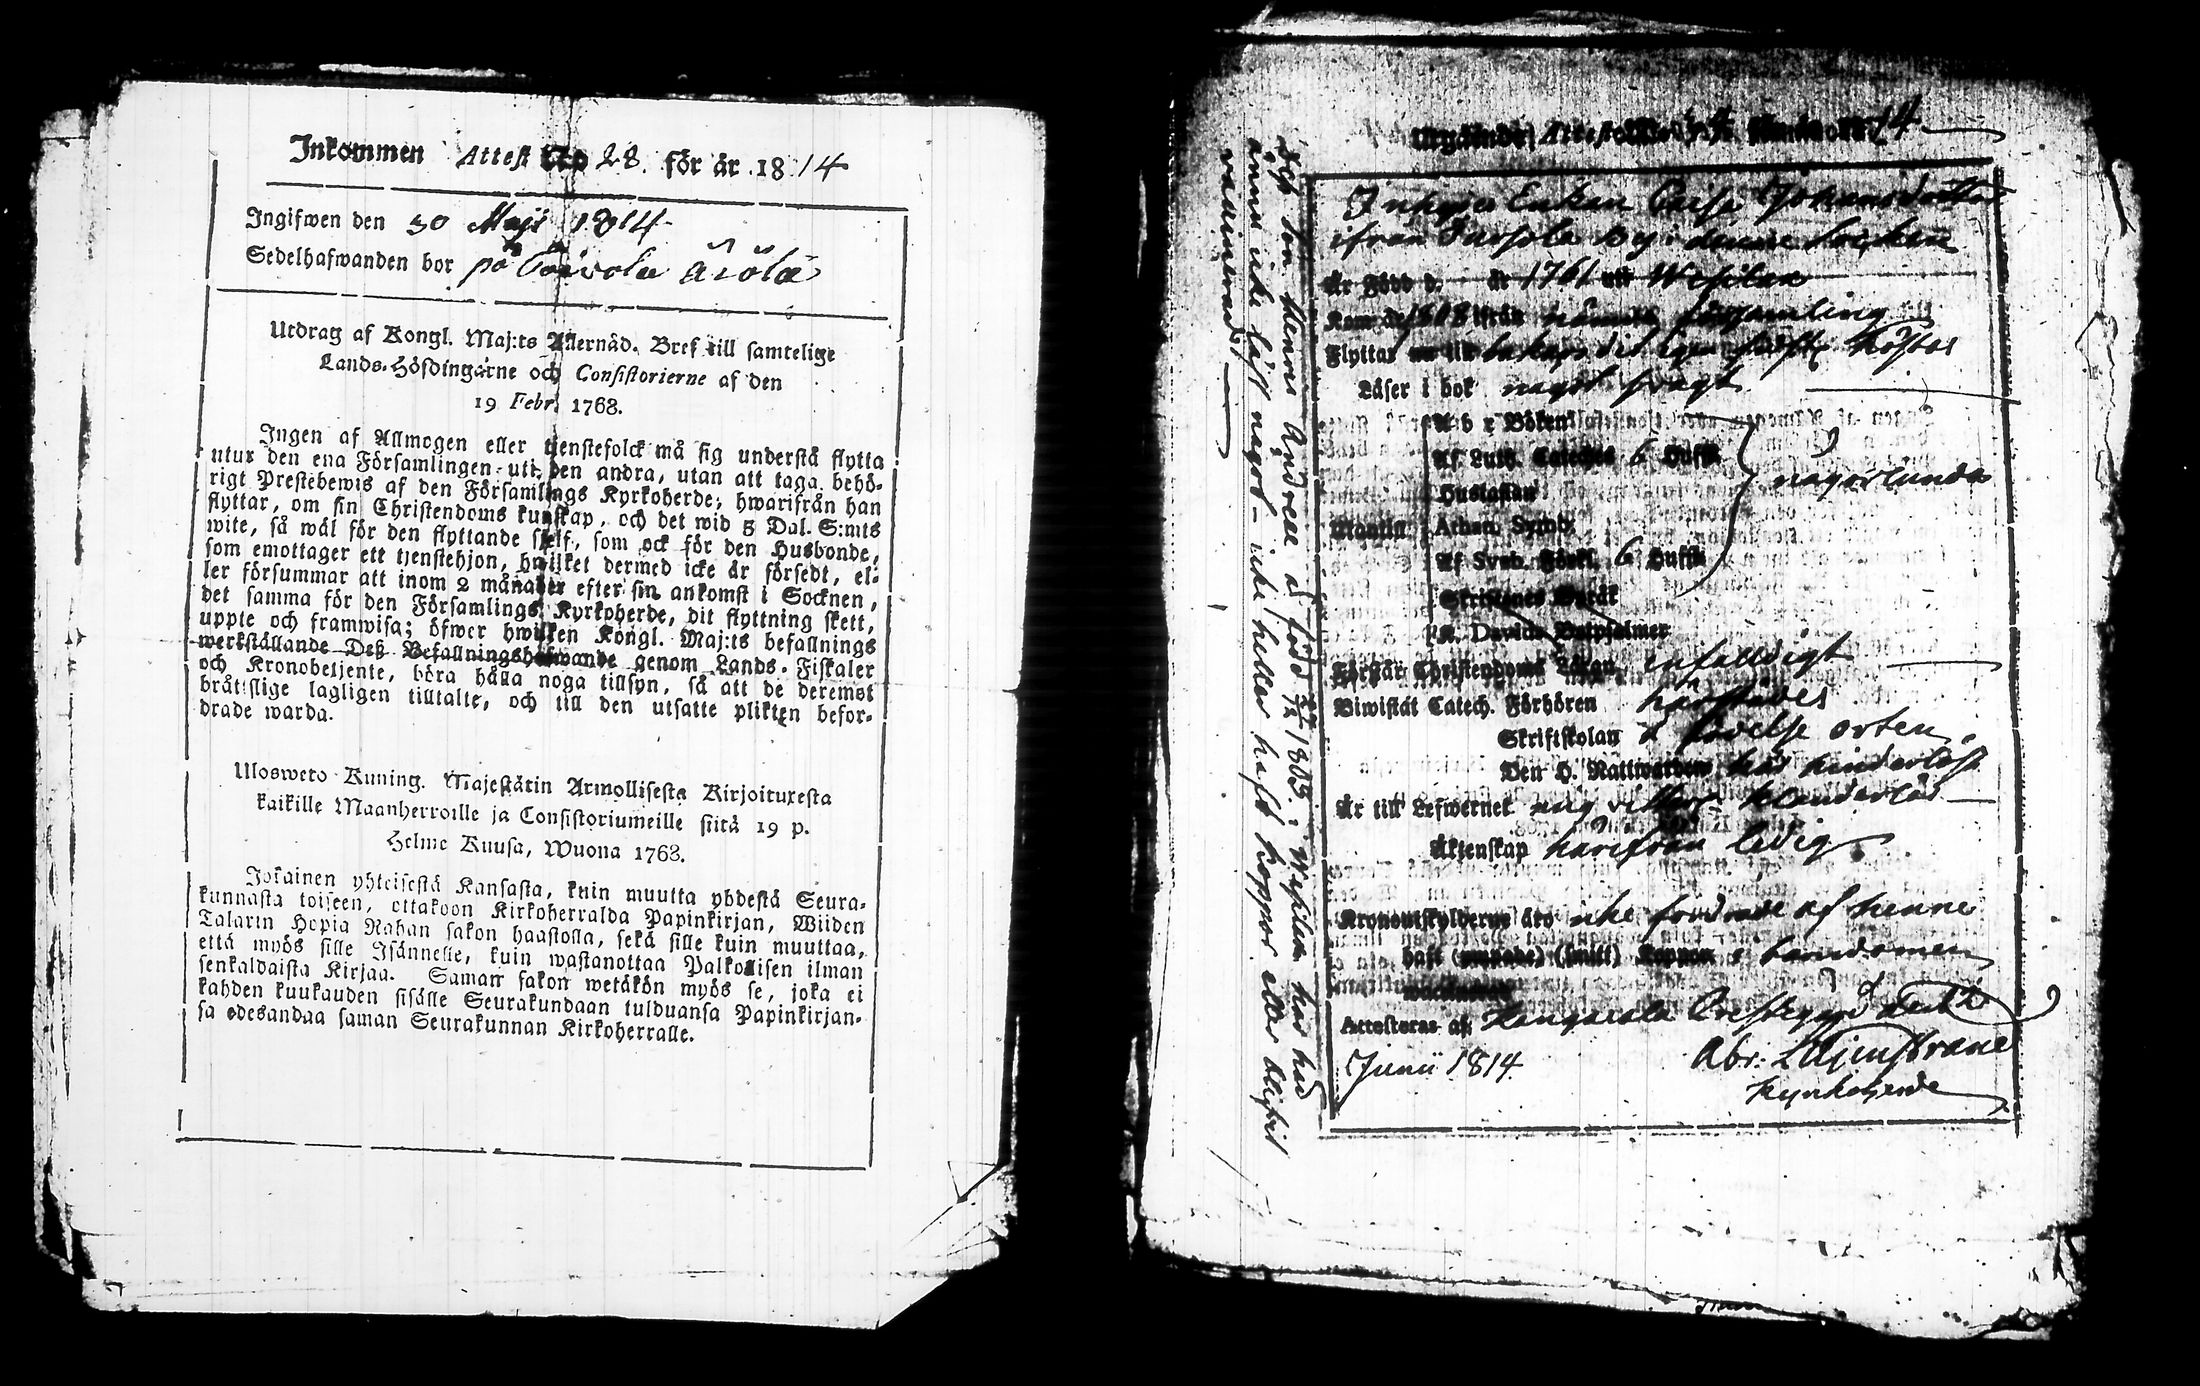 Inkommen Attest No 28. för år 1814
Ingifwen den 30 Maji 1814
Sedelhafwanden bor på Toivola
Utdrag af Kongl. Maj:ts Allernåd. Bref till samtelige
Lands-Höfdingarne och Consistorierne af den
19 Febr. 1768.
Ingen af Allmogen eller tjenstefolck må sig understå flytta
utur den ena Församlingen uti den andra, utan att taga behö-
rigt Prestebewis af den Församlings Kyrkoherde, hwarifrån han
flyttar, om sin Christendoms kunskap, och det wid 5 Dal. S:mts
wite, så wäl för den flyttande sjelf, som ock för den Husbonde,
som emottager ett tjenstehjon, hwilket dermed icke är försedt, el-
ler försummar att inom 2 månader efter sin ankomst i Socknen,
det samma för den Församlings Kyrkoherde, dit flyttning skett,
uppte och framwisa; öfwer hwilken Kongl. Maj:ts befallnings
werkställande Deß Befallningshafwande genom Lands-Fiskaler
och Kronobetjente, böra hålla noga tillsyn, så att de deremot
bråtslige lagligen tilltalte, och till den utsatte plikten befor-
drade warda.
Ulosweto Kuning. Majestätin Armollisesta Kirjoituxesta
kaikille Maanherroille ja Consistoriumeille siitä 19 p.
Helme Kuusa, Wuona 1768.
Jokainen yhteisestä Kansasta, kuin muutta yhdestä Seura-
kunnasta toiseen, ottakoon Kirkoherralda Papinkirjan, Wiiden
Talarin Hopia Rahan sakon haastolla, sekä sille kuin muuttaa,
että myös sille Isännelle, kuin wastanottaa Palkollisen ilman
senkaldaista Kirjaa. Saman sakon wetäkön myös se, joka ei
kahden kuukauden sisälle Seurakundaan tulduansa Papinkirjan-
sa edesandaa saman Seurakunnan Kirkoherralle.
Utgående Attest 14
Inhyses Enkan Caisa Johansdotter
ifrån By i denne Socken
Är Född d. år 1761 uti Wesilax
Kom år 1808 ifrån nämde församling
Flyttar nu till
Läser i bok något svagt
A b c Boken
Af Luth. Cateches 6 Hufst.
Hustaflan någorlunda
Utantill Athan. Symb.
Af Symb. Förkl. 6 Hufst.
Skriftenes Språk
K. Davids Botpsalmer
Förstår Christendoms Läran enfalldigt
Biwistat Catech. Förhören härstädes
Skriftskolan i födelse orten
Den H. Nattwarden här hinderlöst
Är till Lefwernet mig vitterl. klanderlös
Äktenskap härifrån ledig
Kronoutskylderne äro icke fordrade af henne
haft (ympade) (smitt) Koppor i barndomen
Attesteras af Kangasala Prestegård den
Junii 1814. Abr: Liljenstrand
Kyrkoherde
Deß Son Henric Andreae är född 1805 i Wesilax har här
ännu icke läst något – icke heller haft koppor eller blifvit
vaccinerad.